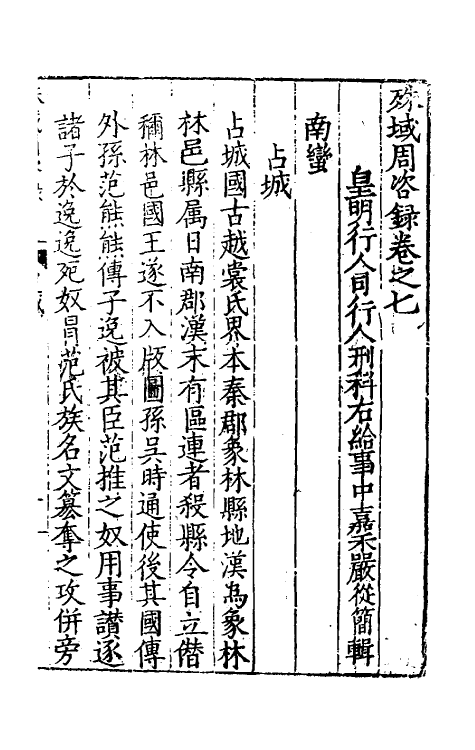 殊域周咨錄卷之七
皇明行人司行人刑科右給事中嘉禾嚴從簡輯
南蠻
占城
占城國古越裳氏界本秦郡象林縣地漢為象林
林邑縣屬日南郡漢末有區連者殺縣令自立僭
稱林邑國王遂不入版圖孫吳時通使後其國傳
外孫范熊熊傳子逸被其臣范推之奴用事讃逐
諸子於逸逸死奴冐范氏族名文篡奪之攻併旁